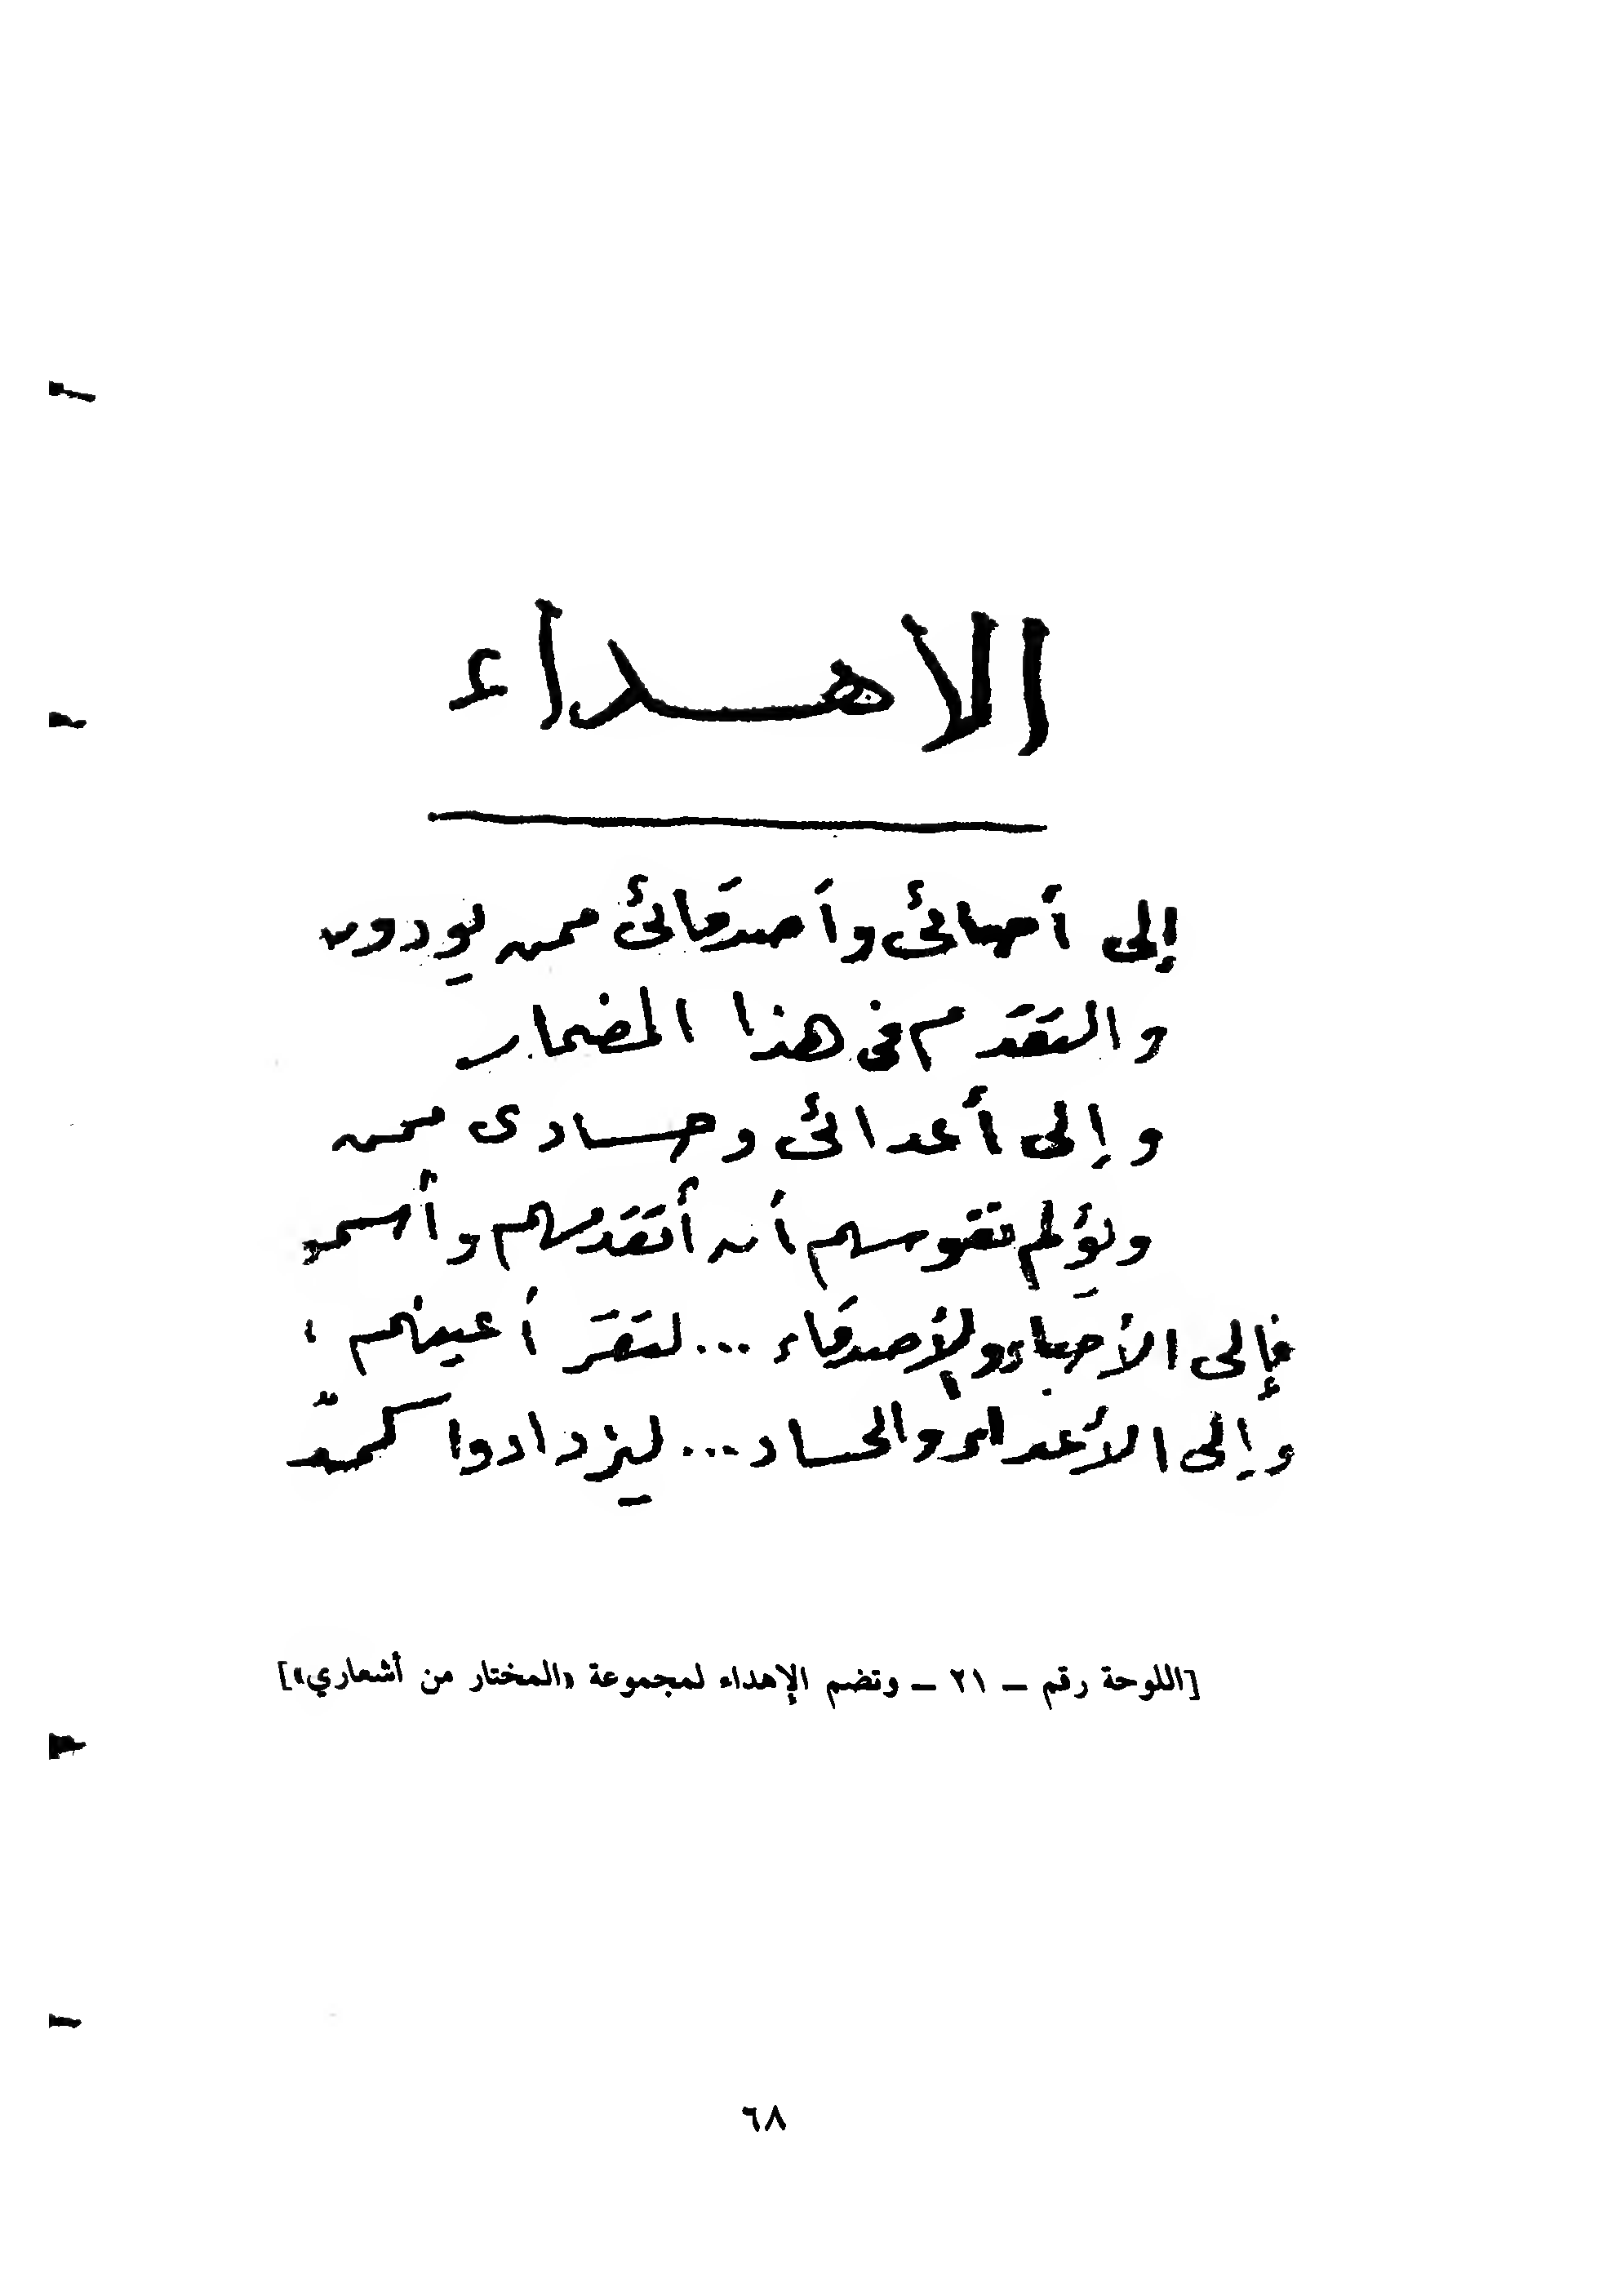 الاهداء
إلى أحبائى وأصدقائى ممن يودون
والتقدم فى هذا المضمار
وإلى أعدائى وحسادى ممن
ويؤلم نفوسهم أن أتقدمهم وأسمو
فإلى الأحباء والأصدقاء ... لتقرّ أعينهم ،
وإلى الأعداء والحساد ... ليزدادوا كمدّ
[اللوحة رقم – ٢١ – وتضم الإهداء لمجموعة «المختار من أشعاري»]
٦٨